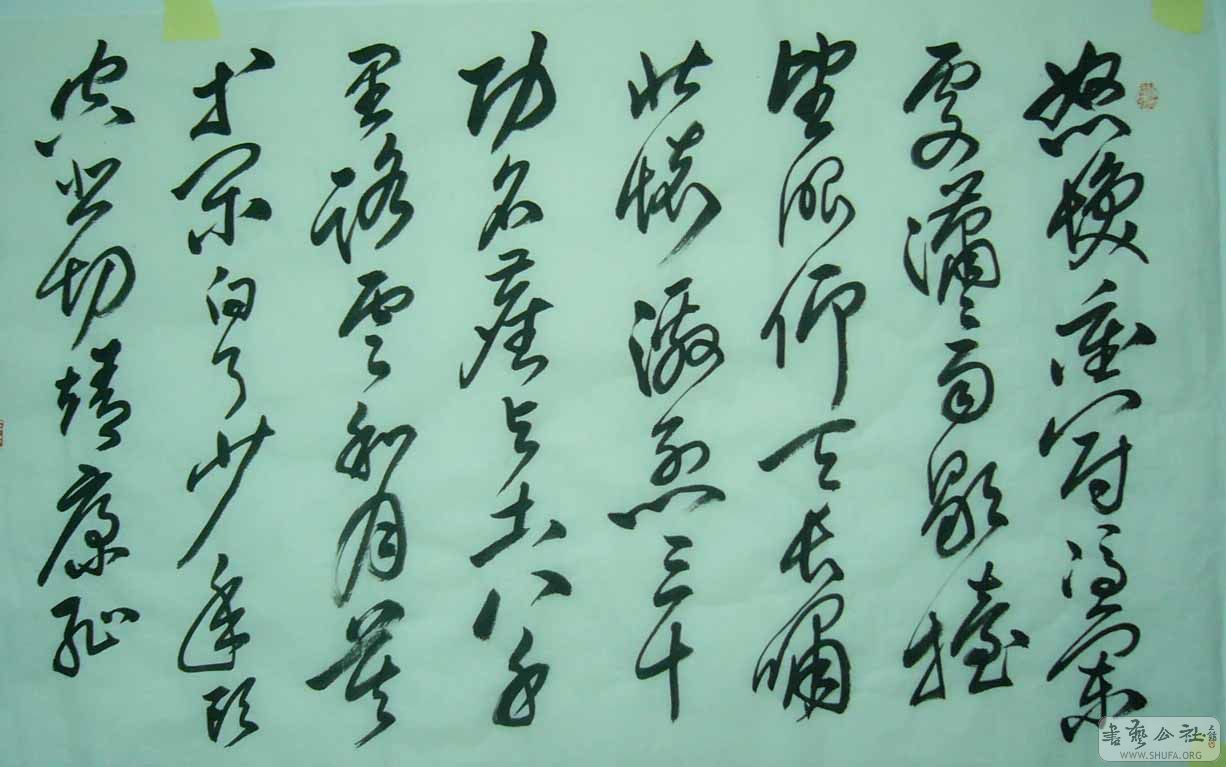 怒髮衝冠憑闌
處瀟瀟雨歇擡
望眼仰天長嘯
壯懷激烈三十
功名塵与土八千
里路雲和月莫
等閑白了少年頭
空悲切靖康恥
書藝公社
WWW.SHUFA.ORG